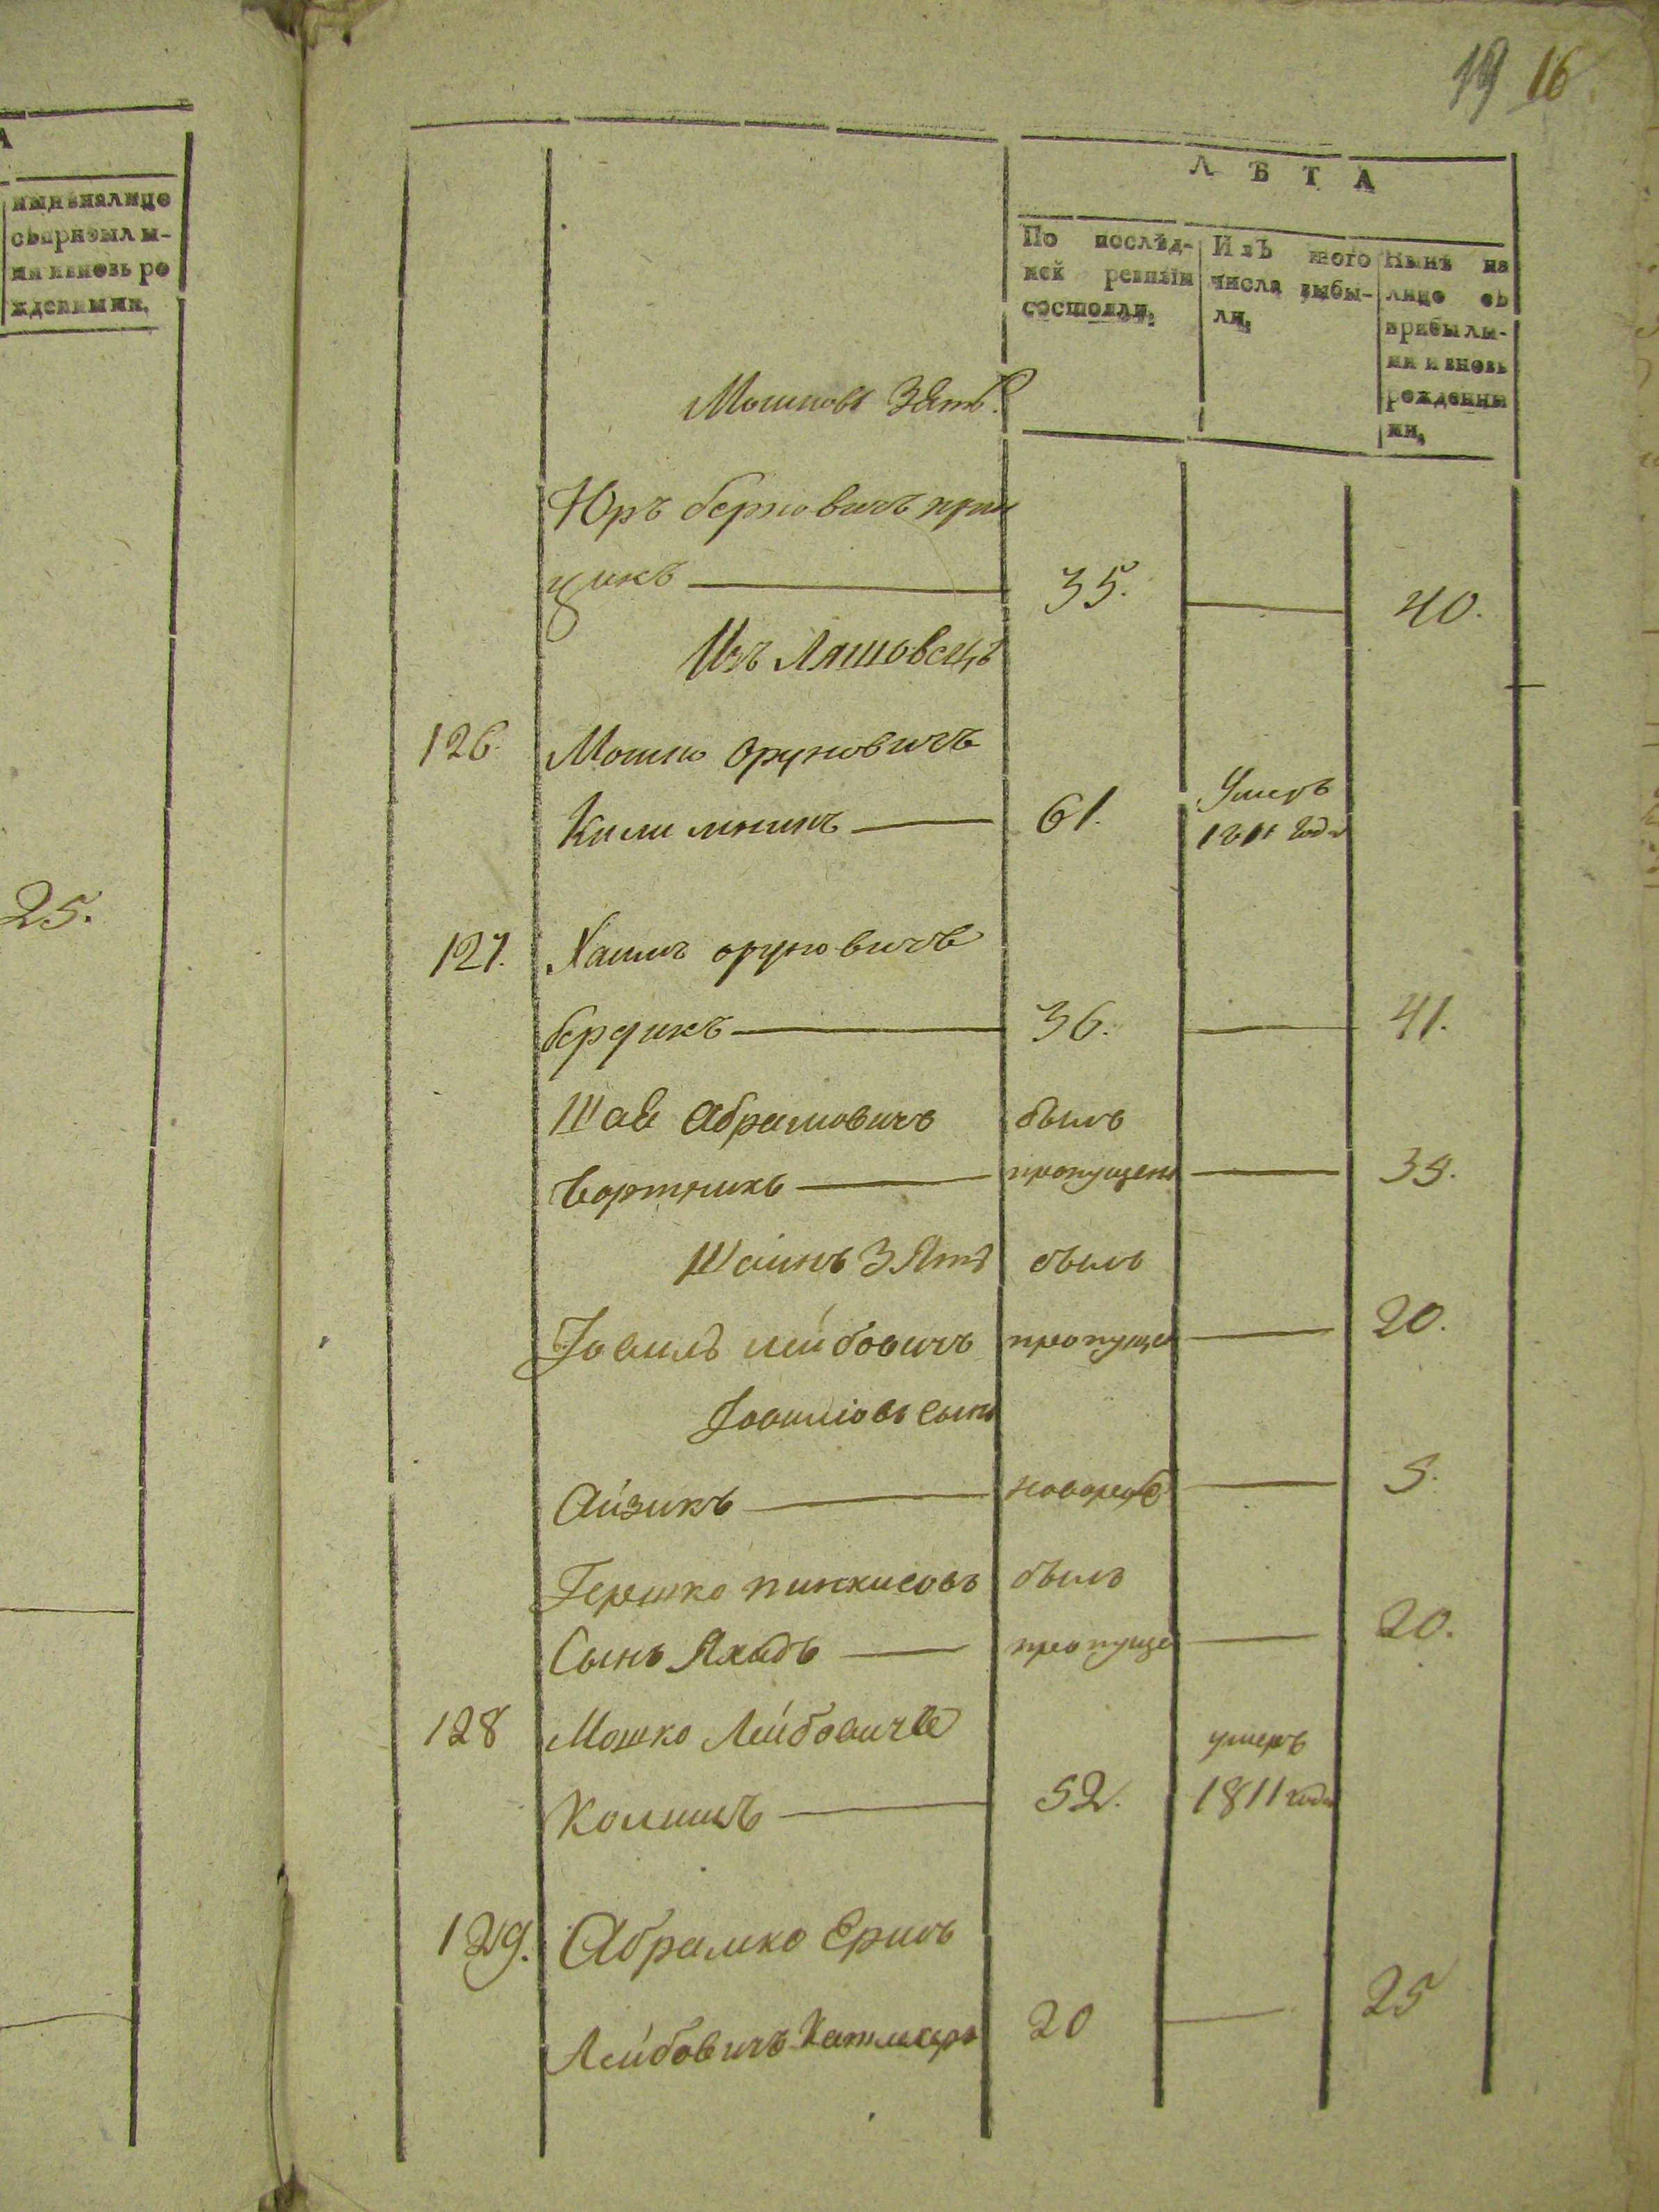 19 16
А
нынѣ налице
съ прибылы-
ми и вновь ро
жденными,
25.
ЛѢТА
По послѣд-
ней ревизіи
состояли,
Изъ того
числа выбы-
ли,
Нынѣ на
лице съ
прибылы-
ми и вновь
рожденны
ми,
Мошковъ Зять
Юръ берковичъ
цикъ 35. 40.
Изъ Ляховецъ
126. Мошко Оруновичъ
61. Умеръ
1811 года
127. Хаимъ оруновичъ
бердикъ 36. 41.
Шая Абрамовичъ былъ
бортникъ пропущенъ
Шаинъ Зять былъ
Іовиль лейбовичъ пропуще 20.
Іовиліовъ сынъ
Айзикъ 5.
Гершко пинхисовъ былъ
Сынъ пропуще 20.
128 Мошко Лейбовичъ умеръ
52. 1811 года
129. Абрамко
Лейбовичъ 20 25